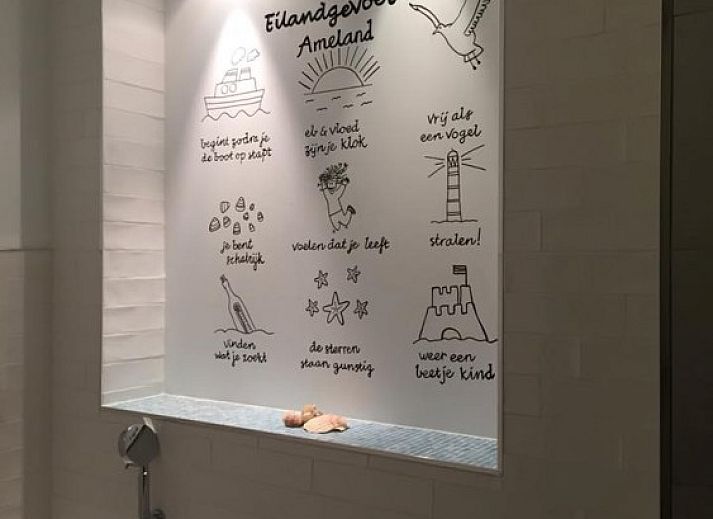 Eilandgevoel
Ameland
begint zodra je
de boot op stapt
eb & vloed
zijn je klok
vrij als
een vogel
je bent
schatrijk
voelen dat je leeft
stralen!
vinden
wat je zoekt
de sterren
staan gunstig
weer een
beetje kind